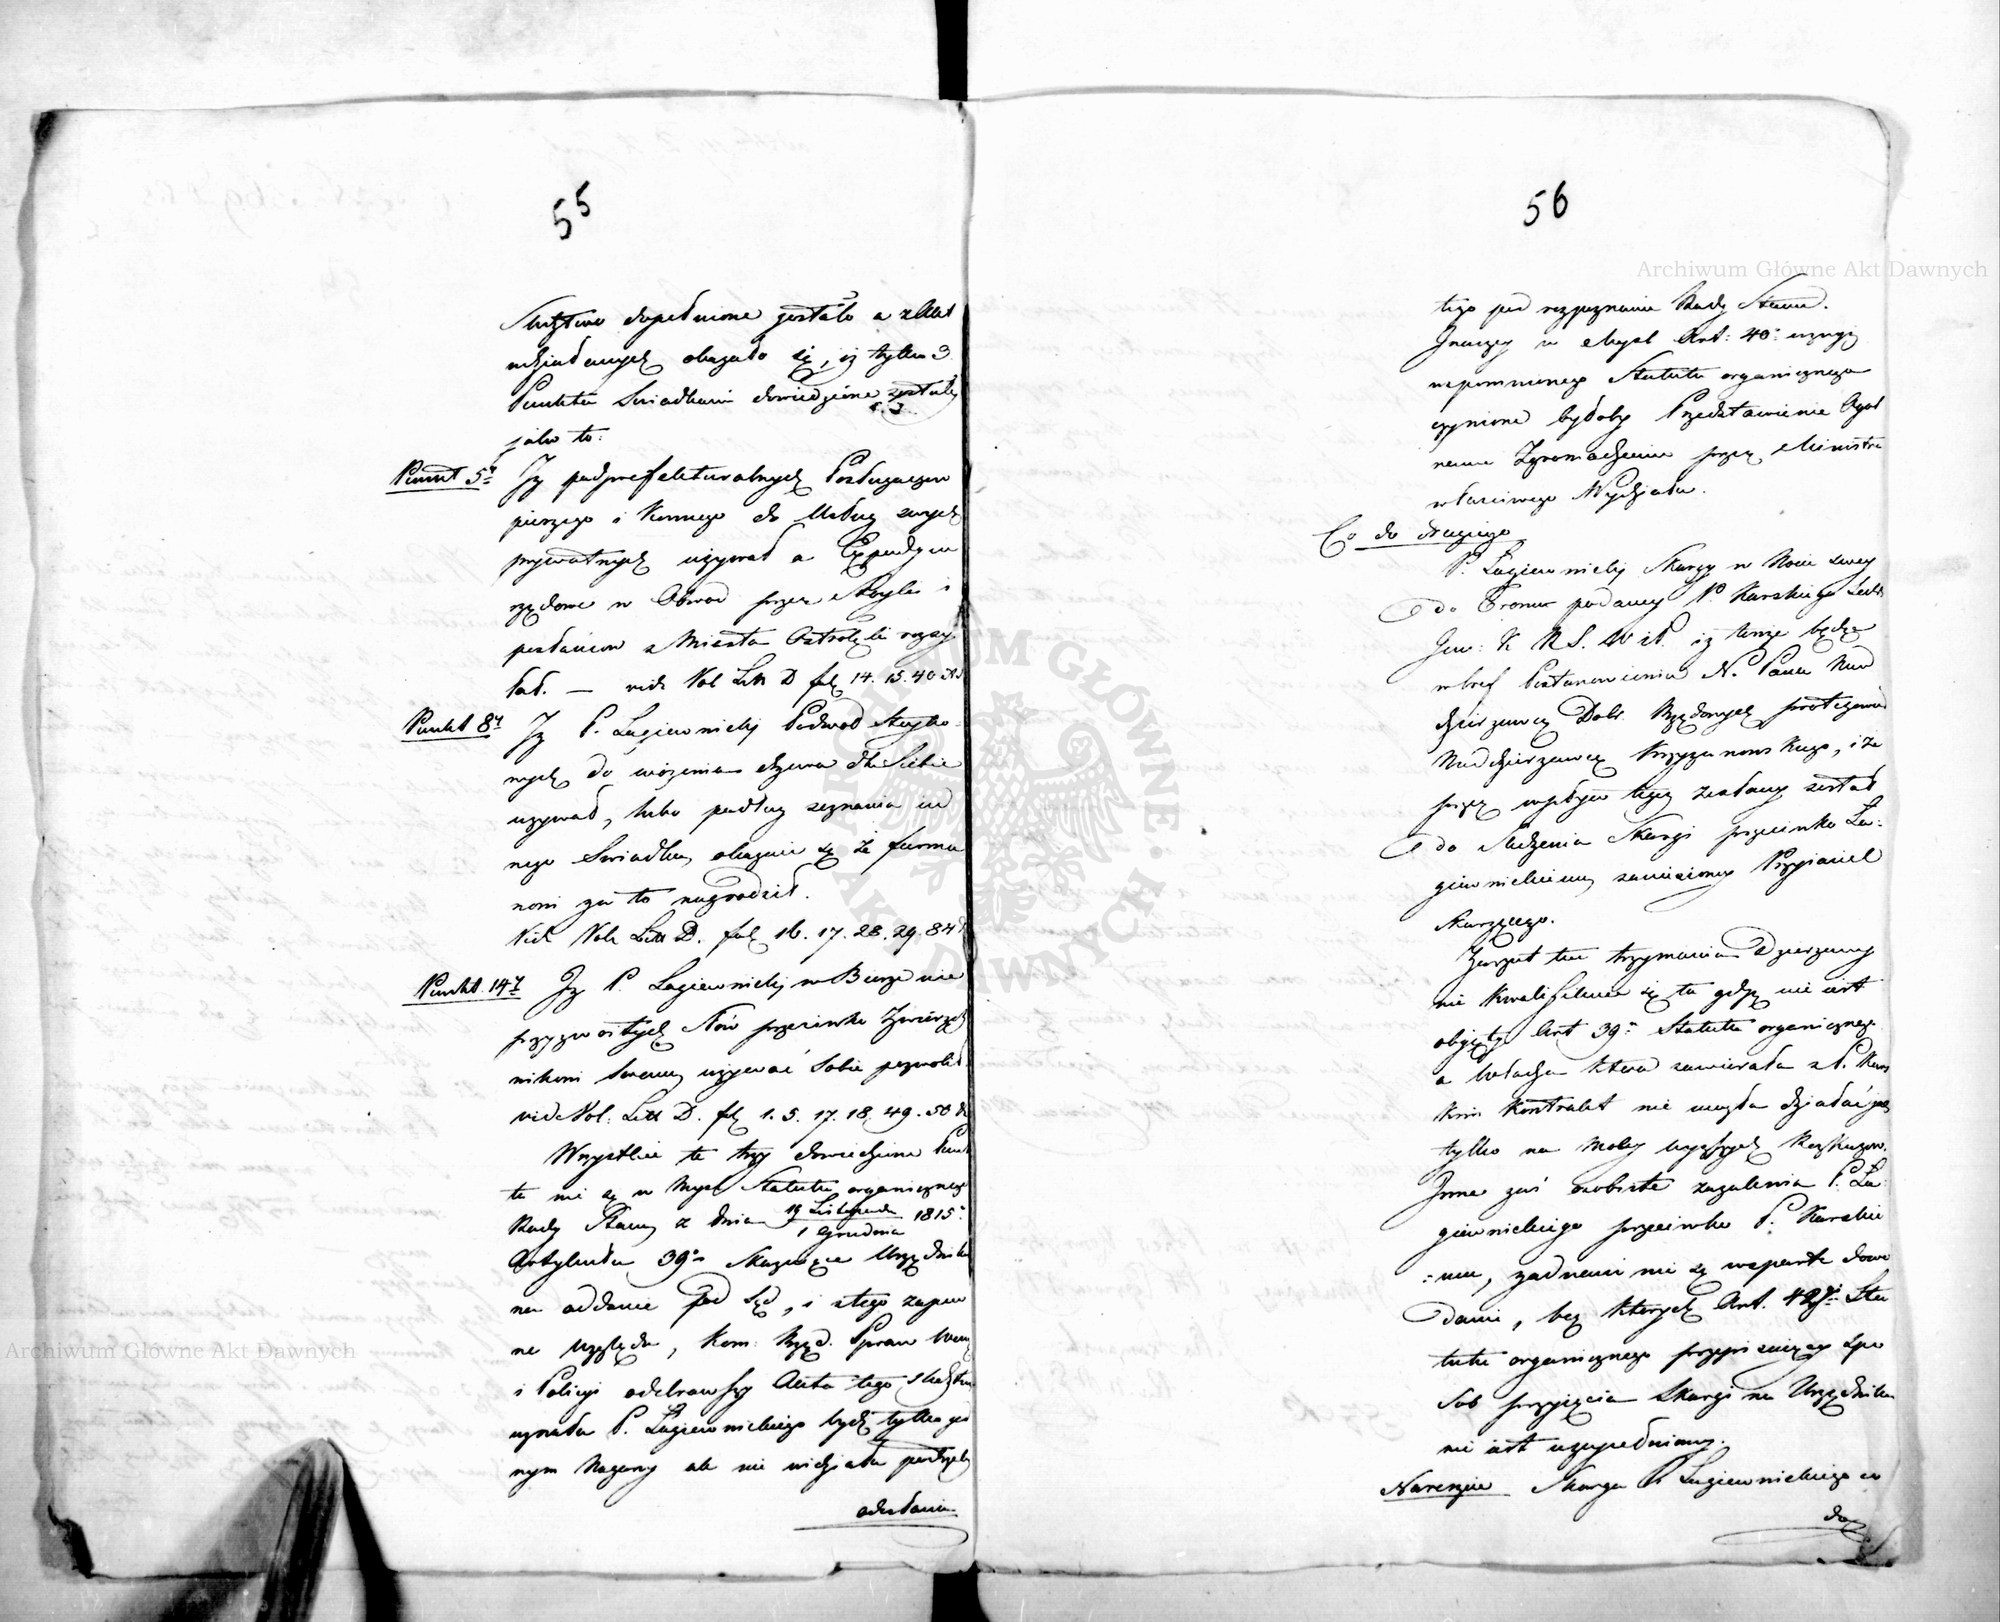 55
Śledztwo dopełnione zostało a z Akt
udziałanych okazało się, iż tylko 3
Punkta Swiadkami dowiedzione zostały
jako to:
Punkt 5ty Iż podprefekturalnych Posługaczow
pieszego i konnego do Usług swych
prywatnych używał a Expedycie
rządowe w Obwod przez Sztafety i
posłańcow z Miasta Ostrołęki rozsy
łał. — vide Vol Litt D fol 14. 15. 40
Punkt 8y Iż P. Łagiewnicki Podwod
nych do wożenia drzewa dla Siebie
używał, lubo podług zeznania
nego Swiadka, okazuie się że furma
nom za to nagrodził.
Vide Vol Litt D. fol 16. 17. 28. 29. 84
Punkt 14y Iż P. Łagiewnicki w Biurze nie
przyzwoitych Słów przeciwko Zwierzch
nikowi swemu używać sobie pozwolił
vide Vol: Litt D. fol 1. 5. 17. 18. 49. 50
Wszystkie te trzy dowiedzione Punk
ta nie są w Mysl Statutu organicznego
Rady Stanu z dnia 19 Listopada / 1 Grudnia 1815.
Artykułu 39o Skazuiące Urzędnika
na oddanie pod Sąd, i z tego zapew
ne względu, Kom: Rząd. Spraw Wew
i Policyi odebrawszy Akta tego Śledztwa
uznała P. Łagiewnickiego bydź tylko god
nym Nagany ale nie widziała potrzeby
odesłania
56
tego pod rozpoznanie Rady Stanu.
Inaczey w Mysl Art: 40o
wspomnionego Statutu organicznego
czynione byłoby Przedstawienie Ogol
nemu Zgromadzeniu przez Ministra
właściwego Wydziału.
Co do drugiego
P. Łagiewnicki Skarży w Nocie swey
do Tronu podaney P. Karskiego
Jen: K R S. W i P. iż tenże będąc
wbrew Postanowienia N. Pana Nad
dzierżawcą Dobr Rządowych protegował
Naddzierżawcę Krzyzanowskiego, i że
przez wpływ tegoż zesłany został
do Śledzenia Skargi przeciwko Ła-
giewnickiemu zaniesioney Przyiaciel
Skarżącego.
Zarzut ten trzymania Dzierżawy
nie kwalifikuie się tu gdyż nie iest
obięty Art 39o Statutu organicznego
a Władza ktora zawierała z P. Kars
kim Kontrakt nie mogła działać jak
tylko na mocy wyższych Rozkazow.
Inne zaś osobiste zażalenia P. Ła-
giewnickiego przeciwko P. Karskie
:mu, żadnemi nie są wsparte dowo
dami, bez ktorych Art. 42gi Sta
tutu organicznego przepisuiący spo
sob przyięcia Skargi na Urzędnika
nie iest uzupełniony.
Nareszcie Skarga P Łagiewnickiego co
do
Archiwum Główne Akt Dawnych
Archiwum Główne Akt Dawnych
ARCHIWUM GŁÓWNE AKT DAWNYCH